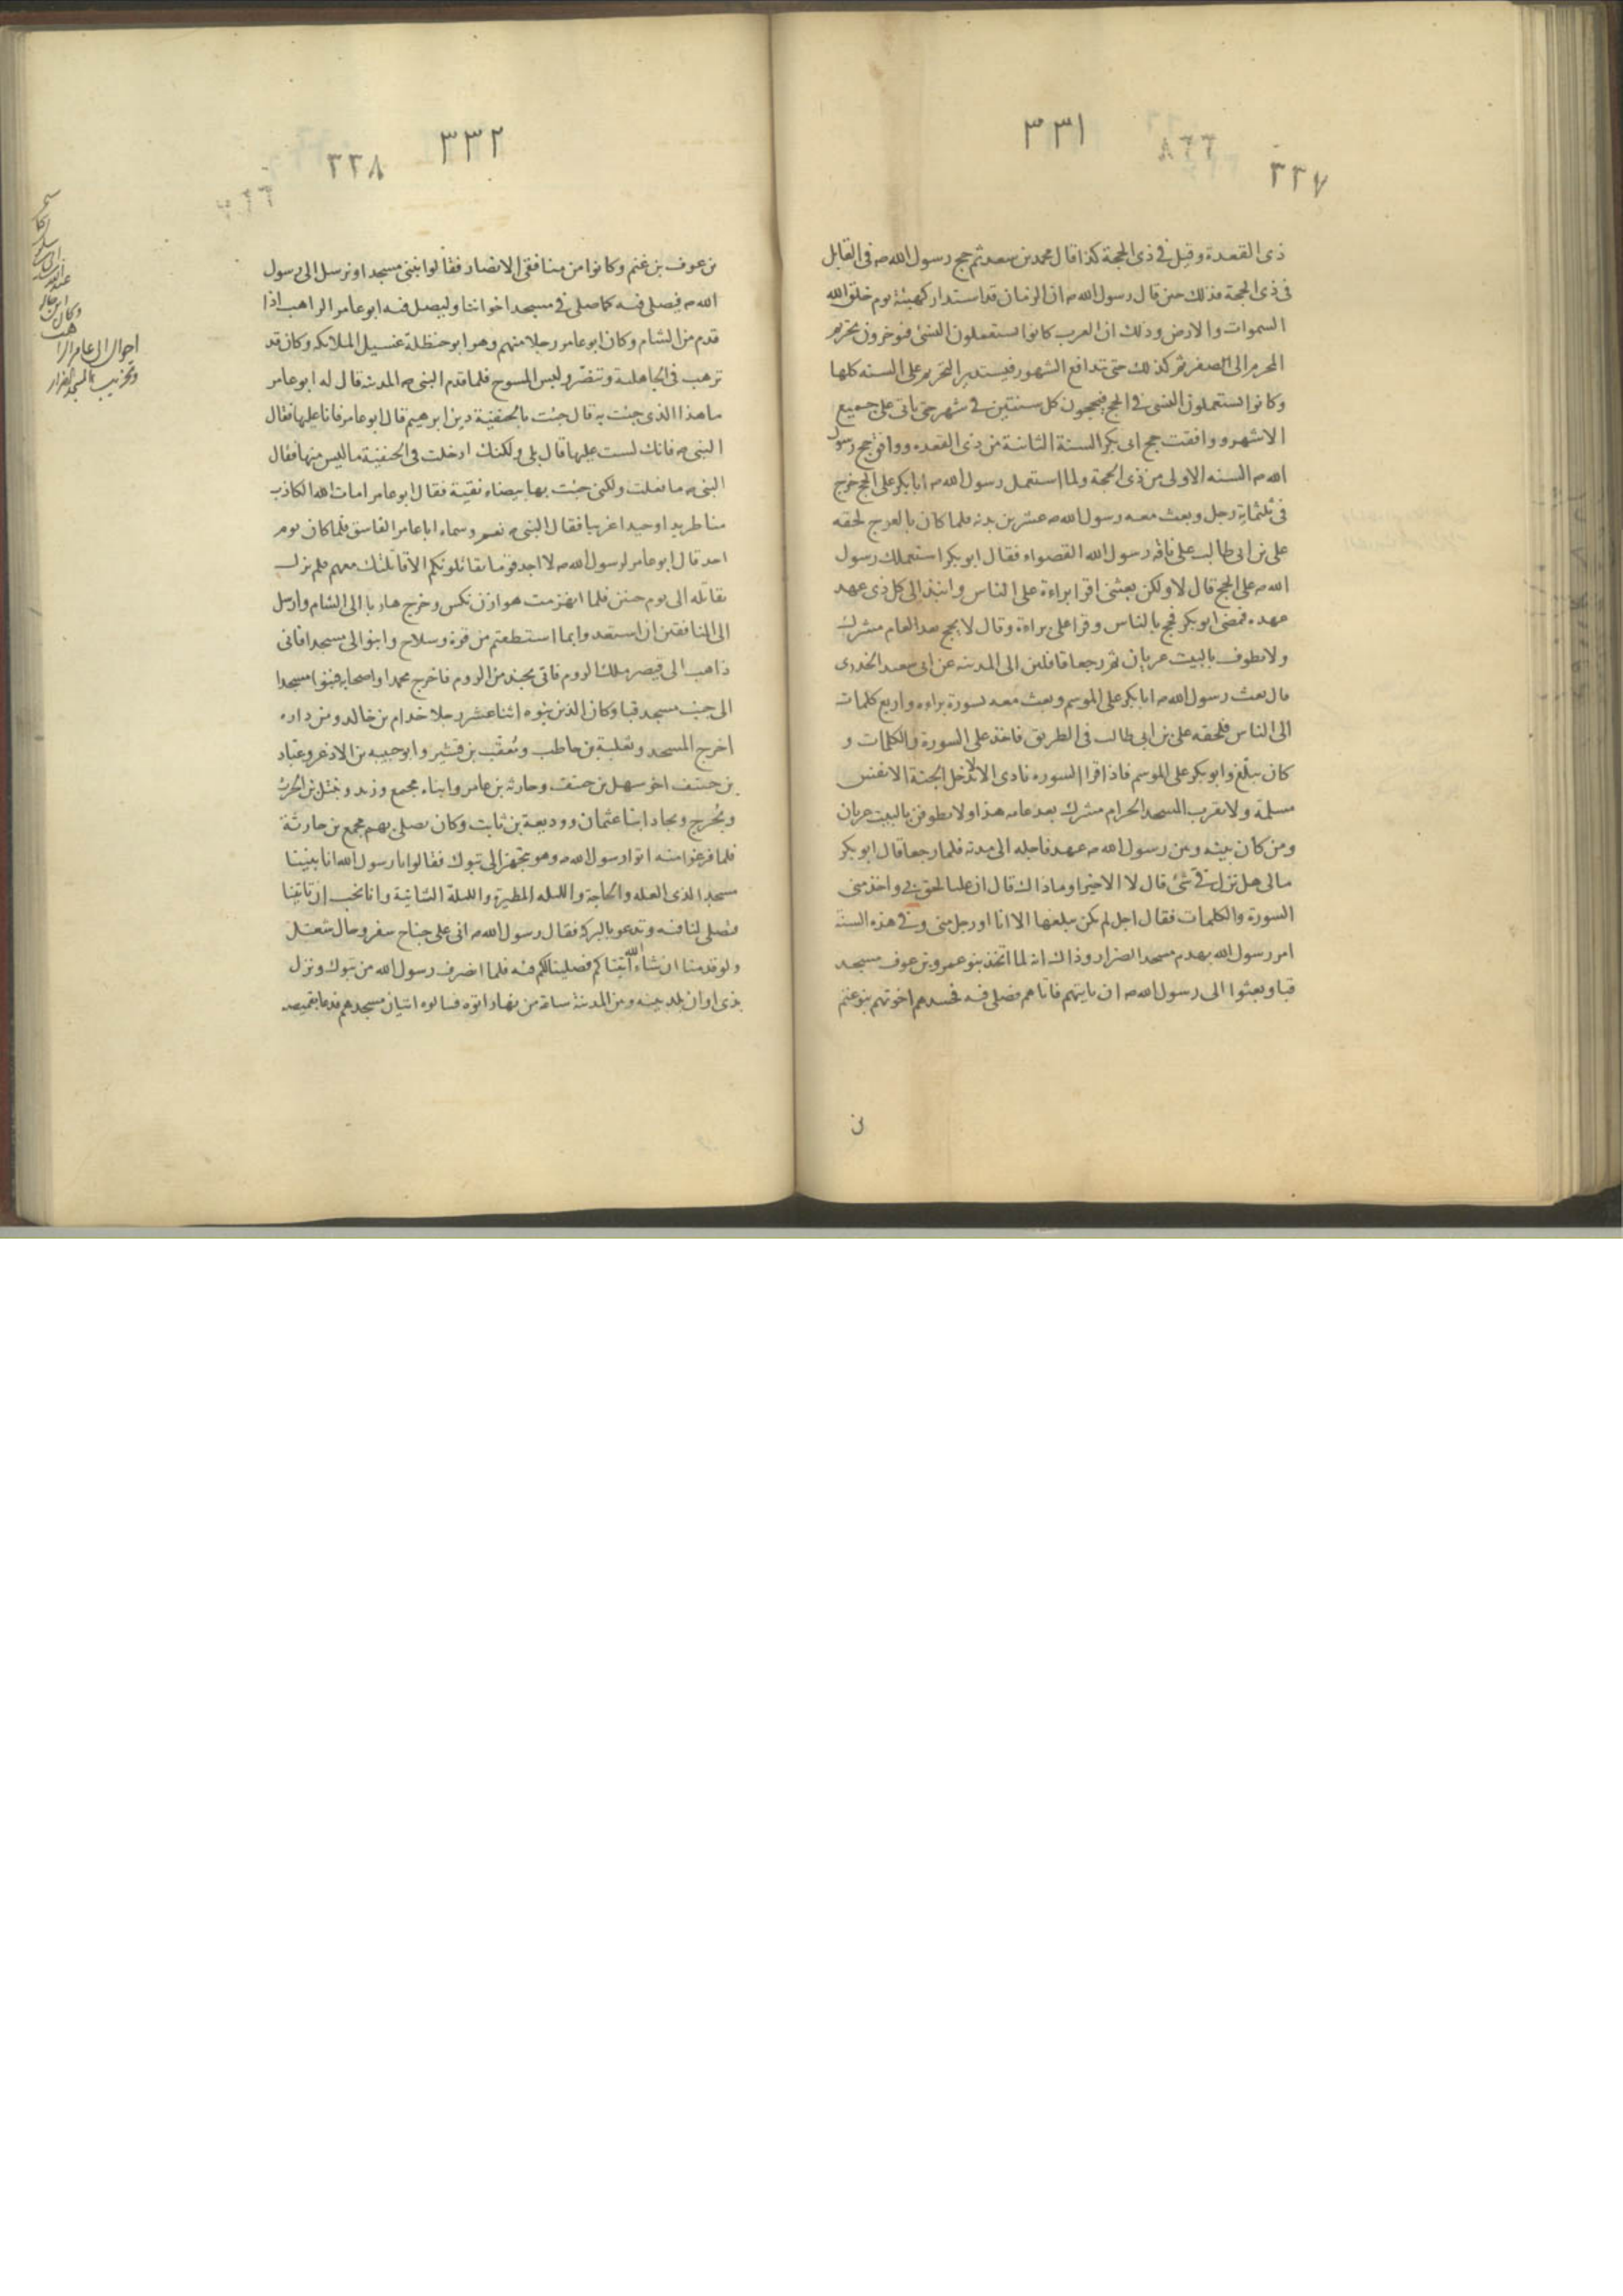 ٣٣١
٣٣٧
ذى القعدة وقيل في ذى الحجة كذا قال محمد بن سعد ثم حج رسول الله ص في القابل
في ذى الحجة فذلك حين قال رسول الله ص ان الزمان قد استدار كهيئة يوم خلق الله
السموات والارض وذلك ان العرب كانوا يستعملون النسئ فيؤخرون تحريم
المحرم الى الصفر ثم كذلك حتى تتدافع الشهور فيستدير التحريم على السنه كلها
وكانوا يستعملون النسى في الحج فيحجون كل سنتين في شهر حتى ياتى على جميع
الاشهر ووافقت حج ابى بكر السنة الثانية من ذى القعده ووافق حج رسول
الله ص السنه الاولى من ذى الحجة ولما استعمل رسول الله ص ابا بكر على الحج خرج
في ثلثماية رجل وبعث معه رسول الله ص عشرين بدنه فلما كان بالعرج لحقه
على بن ابى طالب على ناقة رسول الله القصواء فقال ابو بكر استعملك رسول
الله ص على الحج قال لا ولكن بعثنى اقرا براءة على الناس وانبذ الى كل ذى عهد
عهده فمضى ابو بكر فحج بالناس وقرا على براءة وقال لا يحج بعد العام مشرك
ولا يطوف بالبيت عريان ثم رجعا قافلين الى المدينه عن ابى سعيد الخدرى
قال بعث رسول الله ص ابا بكر على الموسم وبعث معه بسورة براءه واربع كلمات
الى الناس فلحقه على بن ابى طالب في الطريق فاخذ على السورة والكلمات و
كان يبلغ وابو بكر على الموسم فاذا قرا السوره نادى الا لا يدخل الجنة الا نفس
مسلمة ولا يقرب المسجد الحرام مشرك بعد عامه هذا ولا يطوفن بالبيت عريان
ومن كان بينه وبين رسول الله ص عهد فاجله الى مدته فلما رجعا قال ابو بكر
مالى هل نزل في شئ قال لا الا خيرا وماذاك قال ان عليا لحق بى واخذ منى
السورة والكلمات فقال اجل لم يكن يبلغها الا انا او رجل منى وفي هذه السنة
امر رسول الله بهدم مسجد الضرار وذاك انه لما اتخذ بنو عمرو بن عوف مسجد
قبا وبعثوا الى رسول الله ص ان ياتيهم فاتاهم فصلى فيه فحسدهم اخوتهم بنو غنم
٣٣٢
٣٣٨
بن عوف بن غنم وكانوا من منافقى الانصار فقالوا نبنى مسجدا ونرسل الى رسول
الله ص فيصلى فيه كما صلى في مسجد اخواننا وليصل فيه ابو عامر الراهب اذا
قدم من الشام وكان ابو عامر رجلا منهم وهو ابو حنظلة غسيل الملايكه وكان قد
ترهب في الجاهلية وتنصر ولبس المسوح فلما قدم النبى ص المدينه قال له ابو عامر
ما هذا الذى جئت به قال جئت بالحنفية دين ابرهيم قال ابو عامر فانا عليها فقال
النبى ص فانك لست عليها قال بلى ولكنك ادخلت في الحنفية ما ليس منها فقال
النبى ص ما فعلت ولكنى جئت بها بيضاء نقية فقال ابو عامر امات الله الكاذب
منا طريدا وحيدا غريبا فقال النبى ص نعم وسماه ابا عامر الفاسق فلما كان يوم
احد قال ابو عامر لرسول الله ص لا اجد قوما يقاتلونكم الا قاتلتك معهم فلم يزل
يقاتله الى يوم حنين فلما انهزمت هوازن نكس وخرج هاربا الى الشام وارسل
الى المنافقين ان استعدوا بما استطعتم من قوة وسلاح وابنوا لى مسجدا فانى
ذاهب الى قيصر ملك الروم فاتى بجند من الروم فاخرج محمدا واصحابه فبنوا مسجدا
الى جنب مسجد قبا وكان الذين بنوه اثنا عشر رجلا خدام بن خالد ومن داره
اخرج المسجد وثعلبة بن حاطب ومعتب بن قشير وابو حبيبه بن الاذعر وعباد
بن حنيف اخو سهل بن حنيف وحارثه بن عامر وابناه مجمع وزيد ونبتل بن الحرث
وبحرج وبجاد ابنا عثمان ووديعة بن ثابت وكان يصلى بهم مجمع بن حارثة
فلما فرغوا منه اتوا رسول الله ص وهو يتجهز الى تبوك فقالوا يا رسول الله انا بنينا
مسجدا لذى العله والحاجة والليله المطيرة والليلة الشاتية وانا نحب ان تاتينا
فتصلى لنا فيه وتدعو بالبركه فقال رسول الله ص انى على جناح سفر وحال شغل
ولو قدمنا ان شاء الله آتيناكم فصلينا لكم فيه فلما انصرف رسول الله من تبوك ونزل
بذى اوان بلد بينه وبين المدينة ساعة من نهار اتوه فسالوه اتيان مسجدهم فدعا بقميصه
احوال ابى عامر الراهب
وتخريب مسجد الضرار